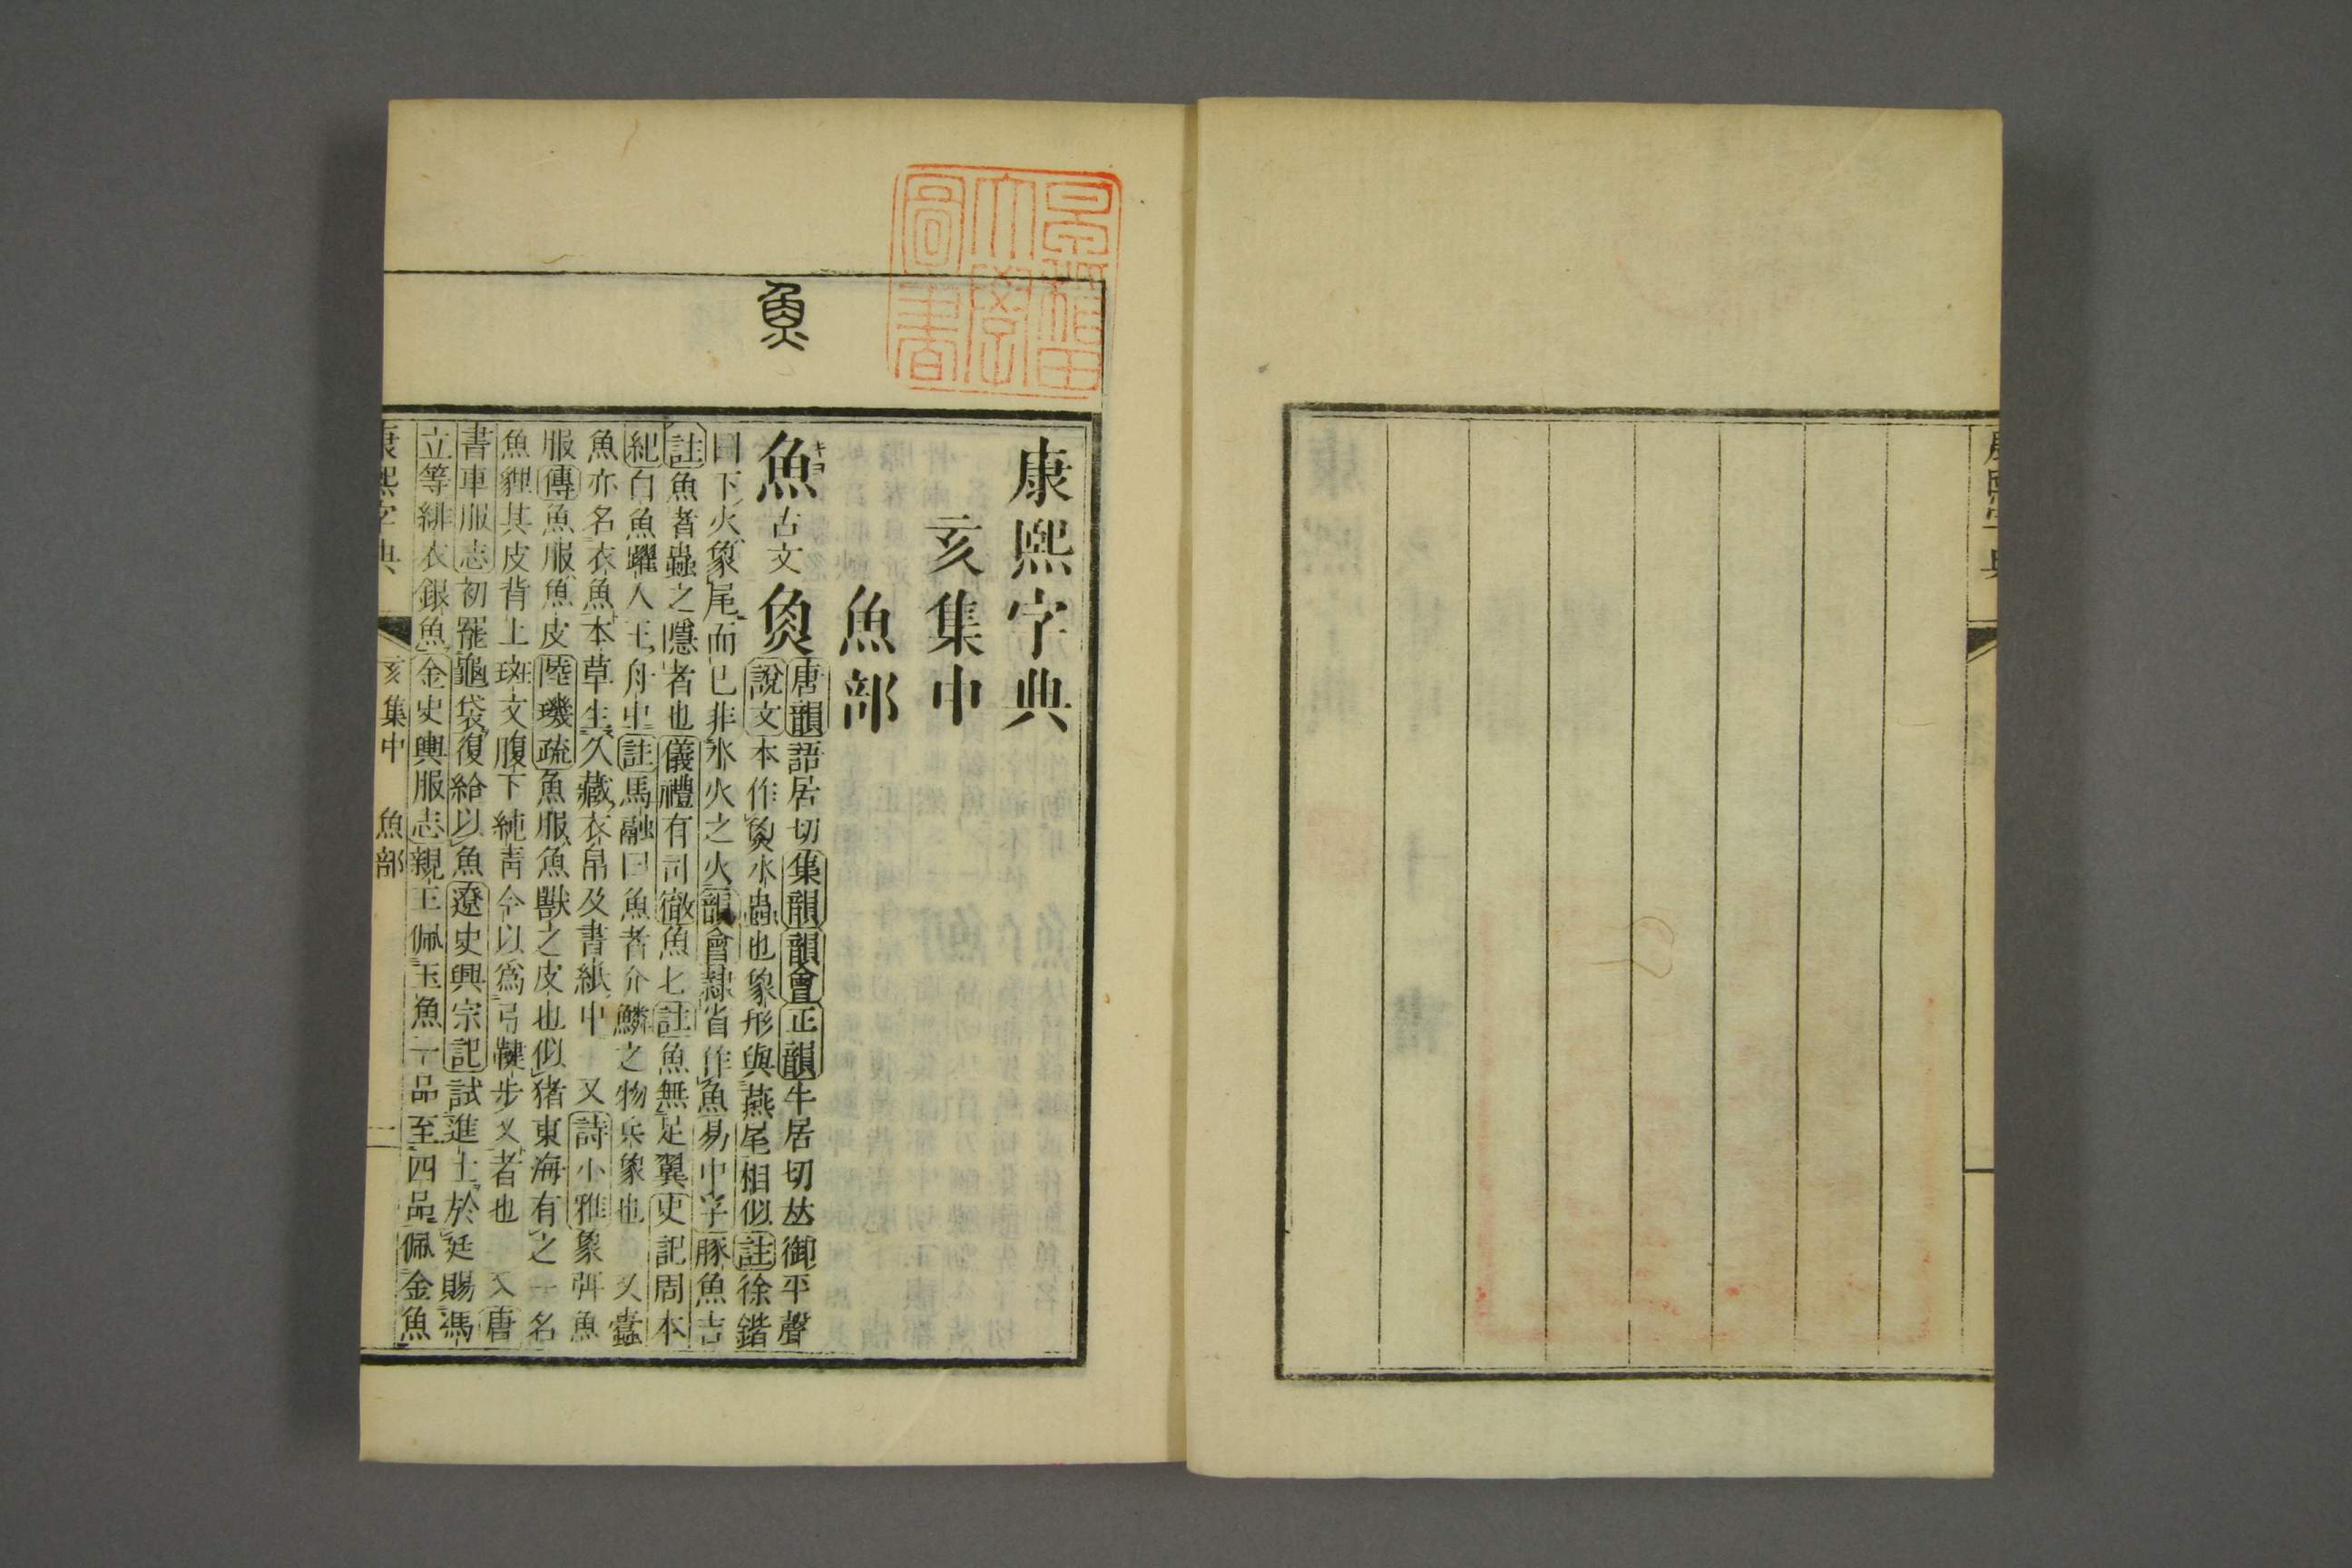 康熙字典
亥集中
魚部
魚 古文𤋳 唐韻語居切集韻韻會正韻牛居切𠀤御平聲
說文本作𤋳水蟲也象形與燕尾相似註徐鍇
曰下火象尾而已非水火之火韻會隷省作魚易中孚豚魚吉
註魚者蟲之隱者也儀禮有司徹魚七註魚無足翼史記周本
紀白魚躍入王舟中註馬融曰魚者介鱗之物兵象也 又蠹
魚亦名衣魚本草生久藏衣帛及書紙中 又詩小雅象弭魚
服傳魚服魚皮陸璣疏魚服魚獸之皮也似猪東海有之一名
魚貍其皮背上斑文腹下純靑今以爲弓鞬步叉者也 又唐
書車服志初罷龜袋復給以魚遼史興宗記試進士於廷賜馮
立等緋衣銀魚金史輿服志親王佩玉魚一品至四品佩金魚
康熙字典 亥集中 魚部 一
魚
キヨ
早稲田大學圖書
康熙字典